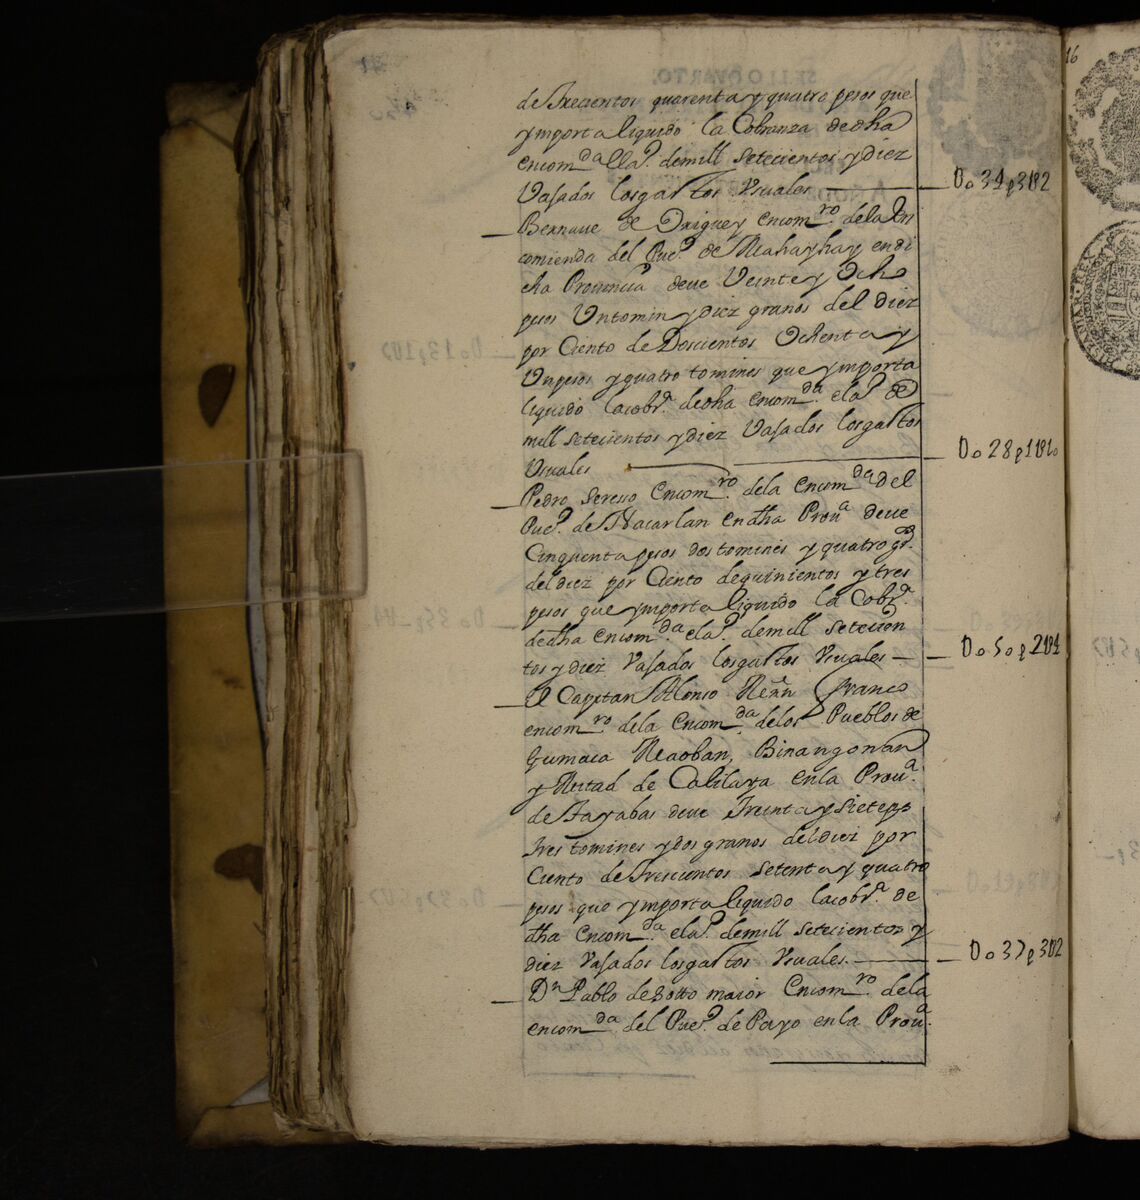 de Trecientos quarenta y quatro pesos que
ymporta liquido la Cobranza dedha
encom.da ella.o demill setecientos y diez
Vajados losgastos Vsuales — Do 34 p 3 tt 2
Bernaue de Origuey encom.ro dela en
comienda del Pue.o de Mahayhay en di
cha Prouincia deue Veinte y Ocho
pesos Vntomin y diez granos del diez
por Ciento de Doscientos Ochenta y
Vnpesos y quatro tomines que ymporta
liquido lacobr.a dedha encom.da ela.o de
mill setecientos y diez Vajados losgastos
Vsuales — Do 28 p 1 tt 10
Pedro Encom.ro dela encom.da del
Pue.o de Nacarlan endha Prou.a deue
Cinquenta pesos dos tomines y quatro gr.s
del diez por Ciento dequinientos y tres
pesos que ymporta liquido la Cobr.a
dedha encom.da ela.o demill setecien
tos y diez Vajados losgastos Vsuales — Do 50 p 2 tt 4
El Capitan Alonso franco
encom.ro dela encom.da delos Pueblos de
Gumaca Maoban, Binangonan
y Mitad de Calilaya enla Prou.a
de Tayabas deue Treinta y siete p.s
tres tomines y dos granos del diez por
Ciento de Trescientos setenta y quatro
pesos que ymporta liquido lacobr.a de
dha encom.da ela.o demill setecientos y
diez Vajados losgastos Vsuales — Do 37 p 3 tt 2
Dn Pablo de Sotto maior Encom.ro dela
encom.da del Pue.o de Payo enla Prou.a
SELLO QVARTO.
16
HISPANIAR·REX